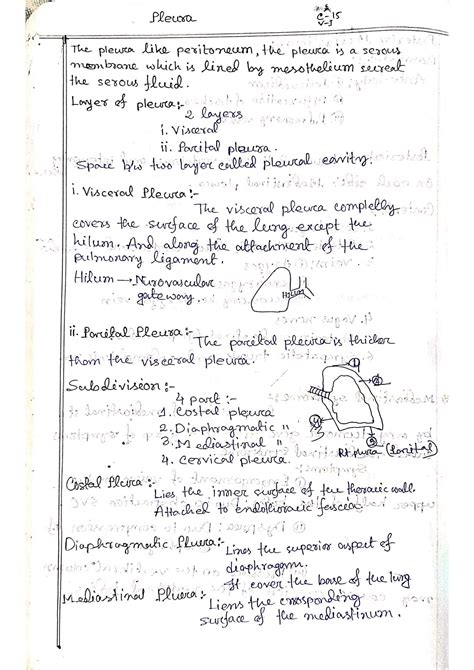 Pleura
C-15
V-3
The pleura like peritoneum, the pleura is a serous
membrane which is lined by mesothelium secreat
the serous fluid.
Layer of pleura:-
2 layers
i. Visceral
ii. Parital pleura.
Space b/w two layer called pleural cavity.
i. Visceral Pleura:-
The visceral pleura completly
covers the surface of the lung except the
hilum. And along the attachment of the
pulmonary ligament.
Hilum → Nurovasculav
gateway.
Hilum
ii. Parital Pleura:-
The parital pleura is thicker
than the visceral pleura.
Subdivision:-
4 part:-
1. Costal pleura
2. Diaphragmatic "
3. Mediastinal "
4. Cervical pleura
1
2
4
3
Rt. plura (Parital)
Costal Pleura:-
Lies the inner surface of the thoracic wall.
Attached to endothoracic fescea
Diaphragmatic Pluera:-
Lines the superior aspect of
diaphragm.
It cover the base of the lung
Mediastinal Pluera:-
Liens the crosponding
surface of the mediastinum.